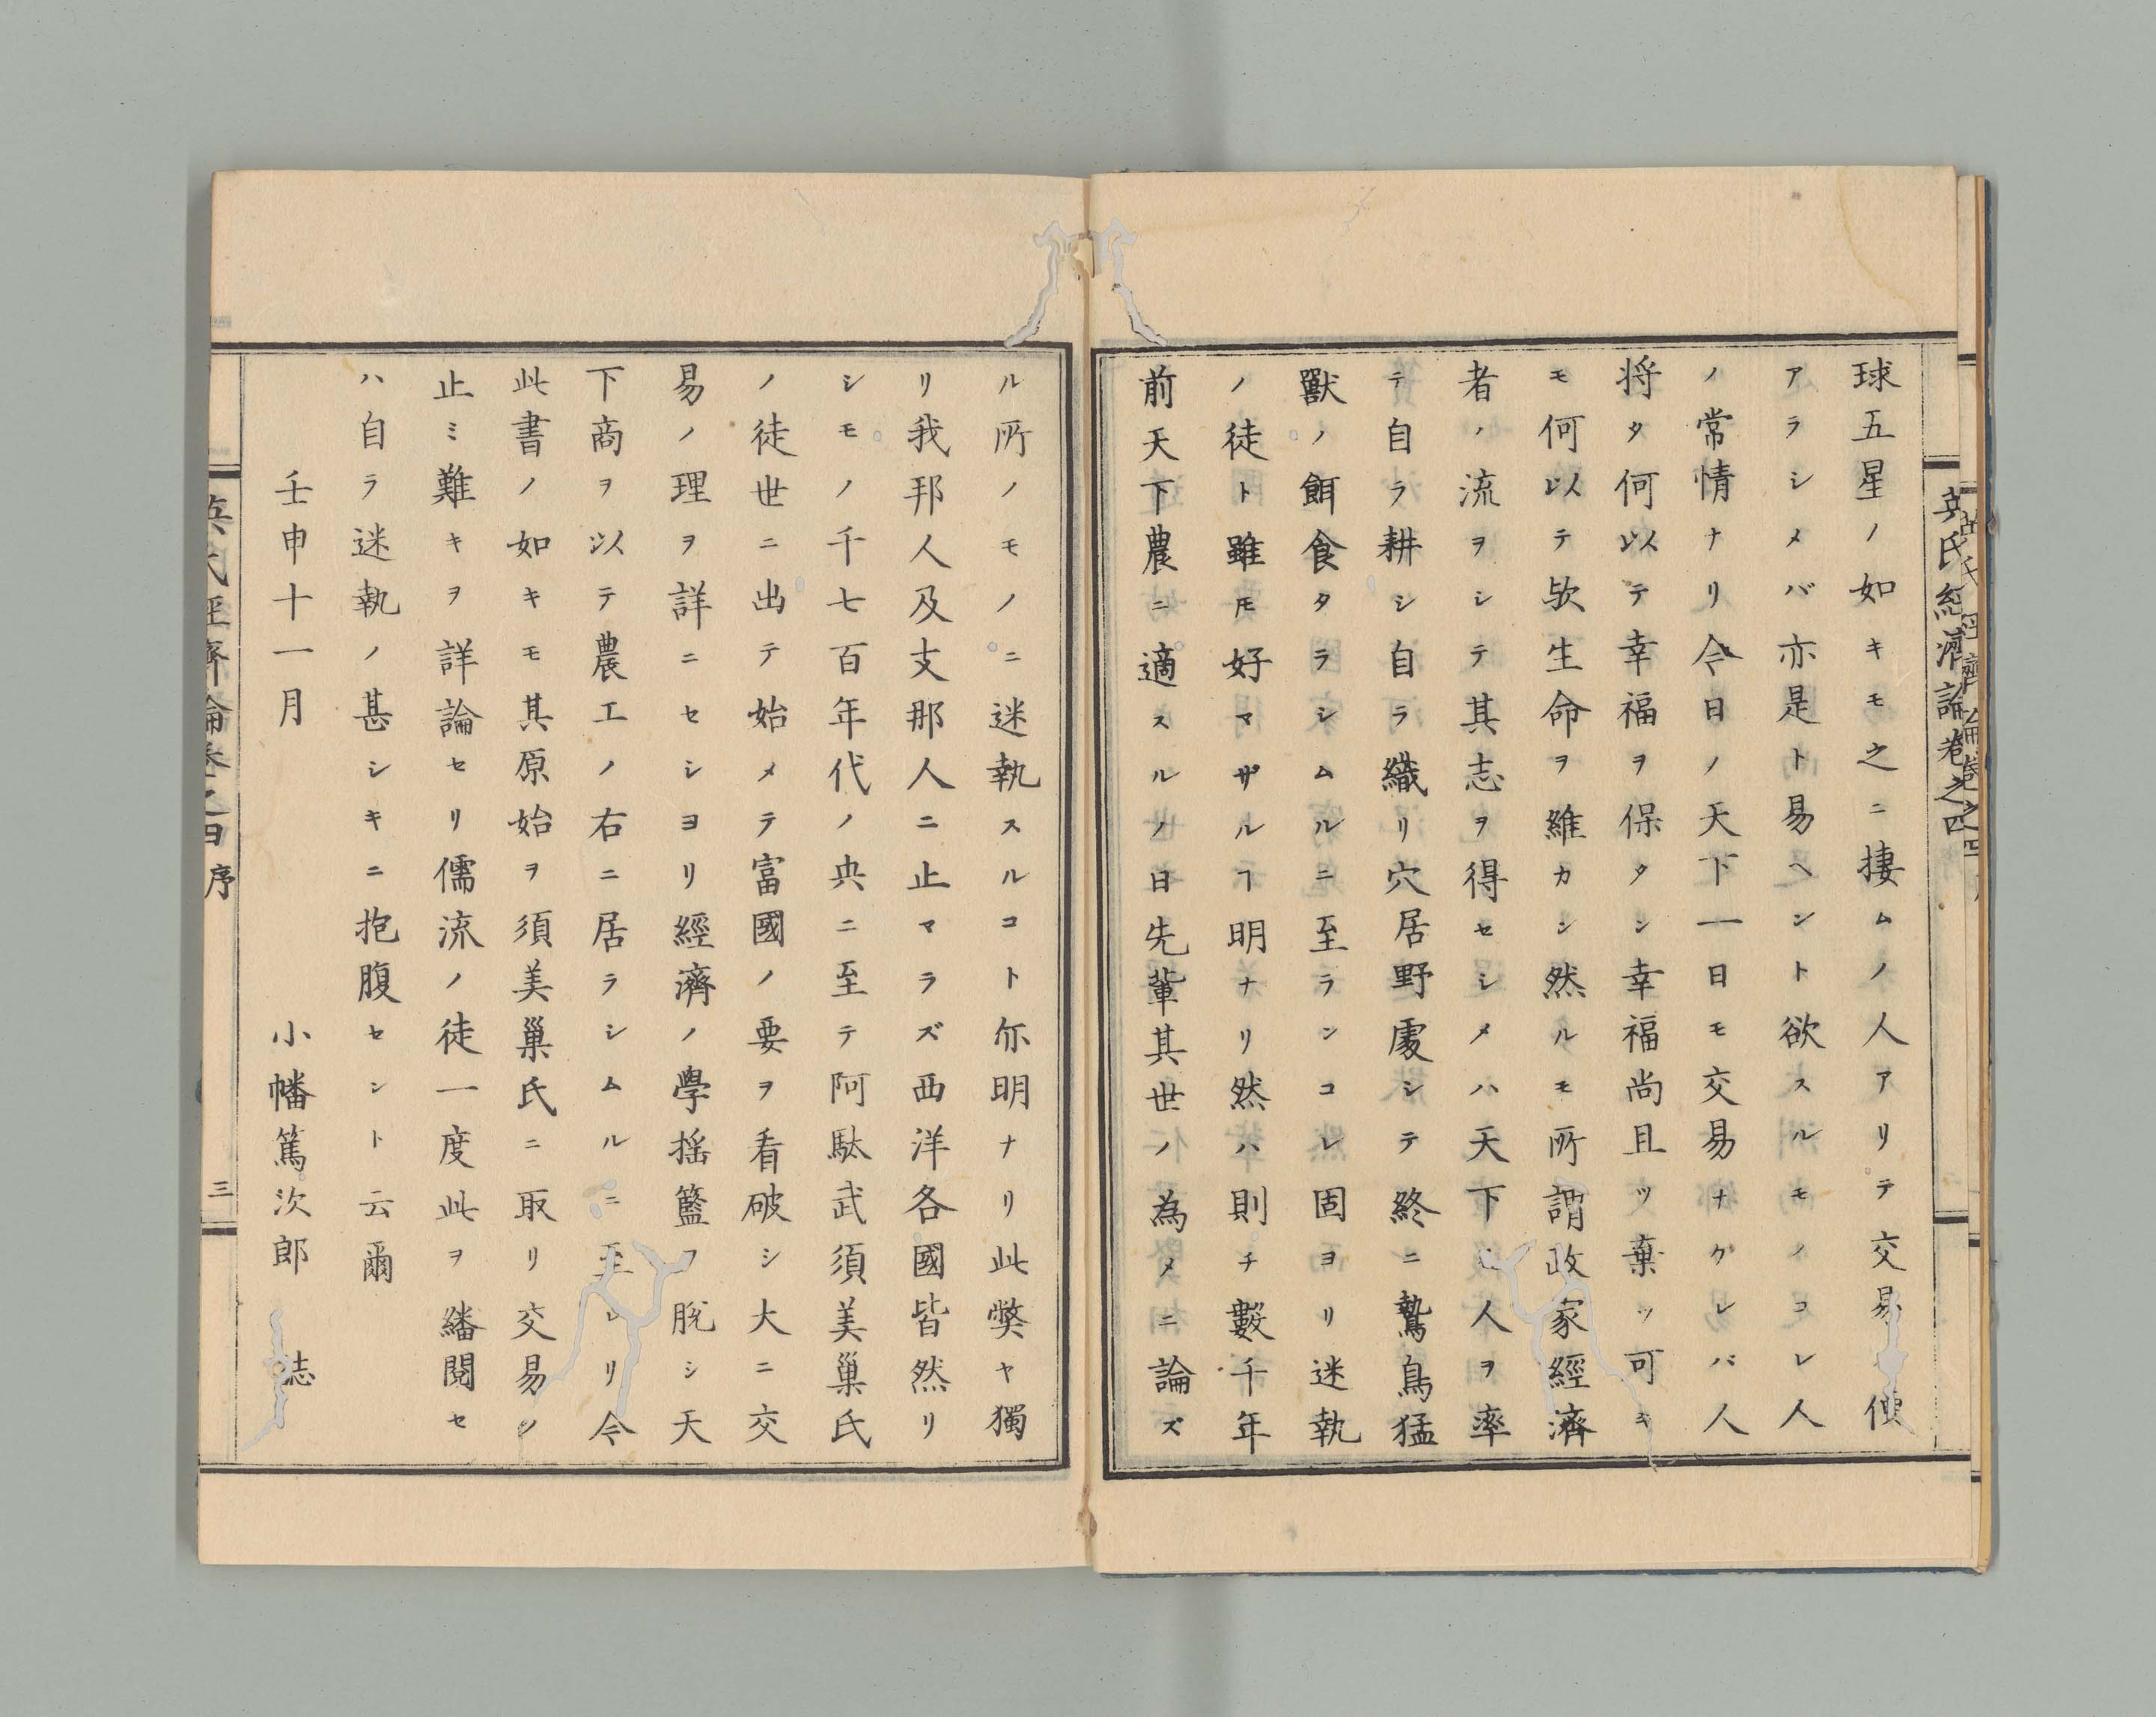 球五星ノ如キモ之ニ捿ムノ人アリテ交易ノ便
アラシメバ亦是ト易ヘント欲スルモノコレ人
ノ常情ナリ令日ノ天下一日モ交易ナクレバ人
将タ何以テ幸福ヲ保タシ幸福尚且ツ棄ツ可キ
モ何以テ欤生命ヲ維カシ然ルモ所謂政家經濟
者ノ流ヲシテ其志ヲ得セシメハ天下ノ人ヲ率
テ自ラ耕シ自ラ織リ穴居野處シテ終ニ鷙鳥猛
獸ノ餌食タラシムルニ至ランコレ固ヨリ迷執
ノ徒ト雖モ好マザルヿ明ナリ然ハ則チ數千年
前天下農ニ適スルノ日先輩其世ノ為メニ論ズ
ル所ノモノニ迷執スルコト尓明ナリ此獘ヤ獨
リ我邦人及支那人ニ止マラズ西洋各國皆然リ
シモノ千七百年代ノ央ニ至テ阿駄武須美巢氏
ノ徒世ニ出テ始メテ富國ノ要ヲ看破シ大ニ交
易ノ理ヲ詳ニセシヨリ經濟ノ學揺籃ヲ脱シ天
下商ヲ以テ農工ノ右ニ居ラシムルニ至レリ令
此書ノ如キモ其原始ヲ須美巢氏ニ取リ交易ノ
止ミ難キヲ詳論セリ儒流ノ徒一度此ヲ繙閲セ
ハ自ラ迷執ノ甚シキニ抱腹セント云爾
壬申十一月　小幡篤次郎　誌
英氏經濟論卷之四 序 三